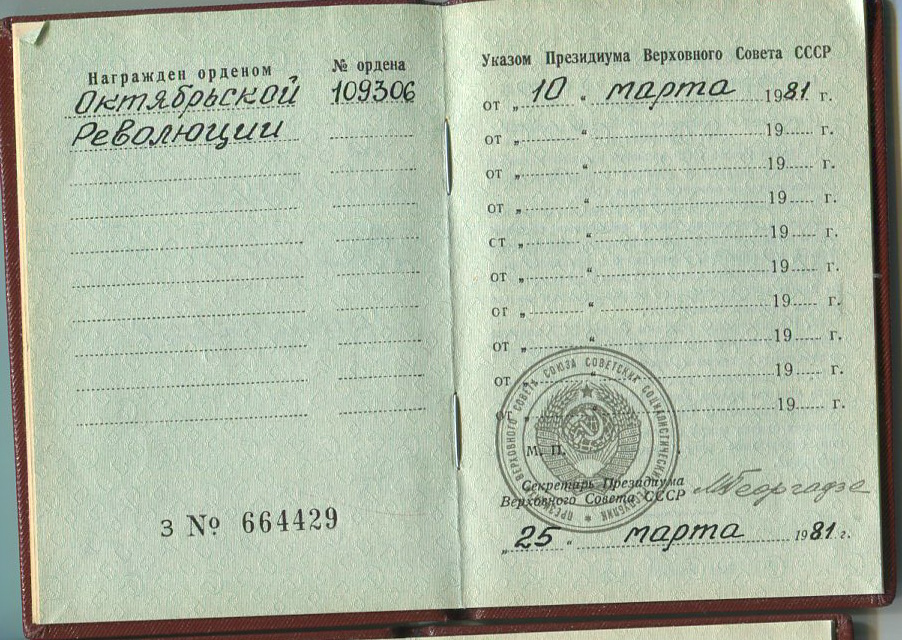 Награжден орденом
Октябрьской
Революции
№ ордена
109306
З № 664429
Указом Президиума Верховного Совета СССР
от „ 10 “ марта 1981 г.
от „ “ 19 г.
от „ “ 19 г.
от „ “ 19 г.
ст „ “ 19 г.
от „ “ 19 г.
от „ “ 19 г.
от „ “ 19 г.
от „ “ 19 г.
от „ “ 19 г.
ВЕРХОВНОГО СОВЕТА СОЮЗА СОВЕТСКИХ СОЦИАЛИСТИЧЕСКИХ РЕСПУБЛИК
М. П.
Секретарь Президиума
Верховного Совета СССР
МГеоргадзе
„ 25 “ марта 1981 г.